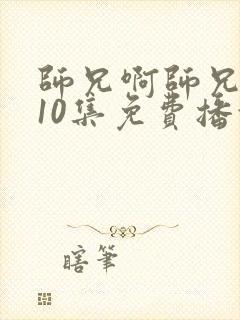 師兄啊師兄
10集免費播
瞎筆